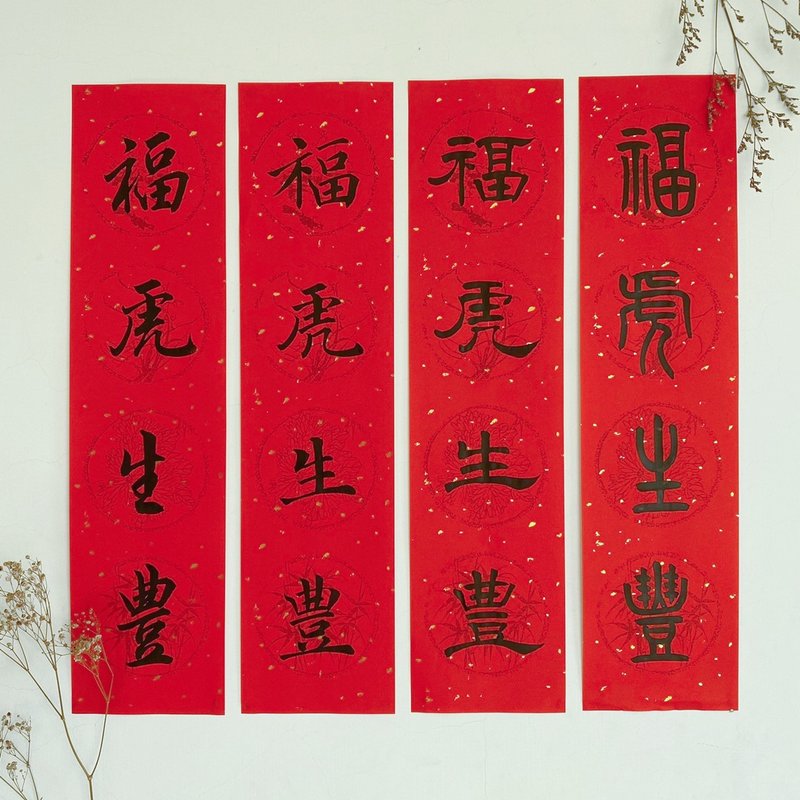 福虎生豊
福虎生豊
福虎生豊
福虎生豐